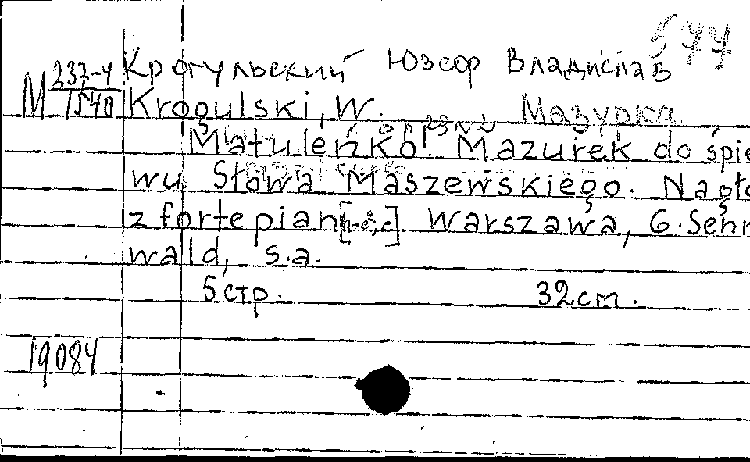 577
Крогульский Юзеф Владислав
М 237-4
1540
Krogulski, W. Мазурка
Matuleńko! Mazurek do śpie
wu Słowa Maszewskiego. Na gło
z fortepian[    ] Warszawa, G. Senn
wald, s.a.
5 стр. 32 cm.
19084